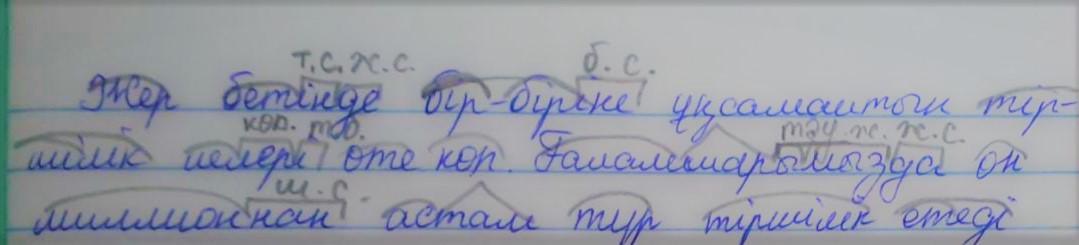 т.с. ж.с. б.с.
Жер бетінде бір-біріне ұқсамайтын тір-
көп. тәу.
шілік иелері өте көп. Ғаламшарымызда он
тәу.ж. ж.с.
ш.с.
миллионнан астам түр тіршілік етеді